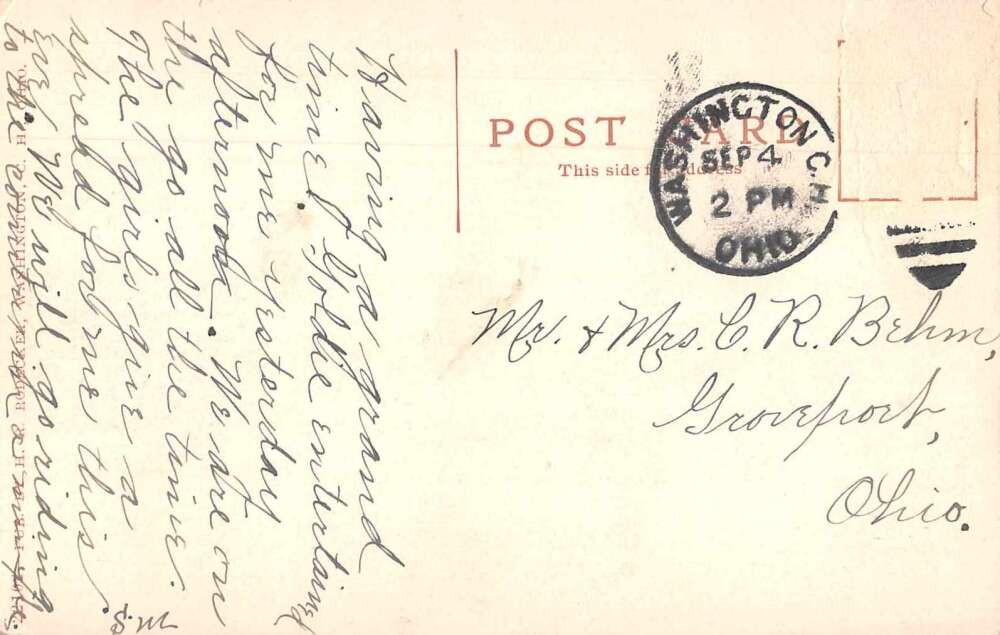 Having a grand
time. Goldie entertained
for me yesterday
afternoon. We are on
the go all the time.
The girls give a
spread for me this
eve. We will go riding
to the
M.
S.
POST CARD
This side for address
WASHINGTON C. H.
SEP 4
2 PM
OHIO
Mr. & Mrs. C. R. Behm,
Groveport,
Ohio.
H. R. RODECKER, WASHINGTON, C. H., OHIO.